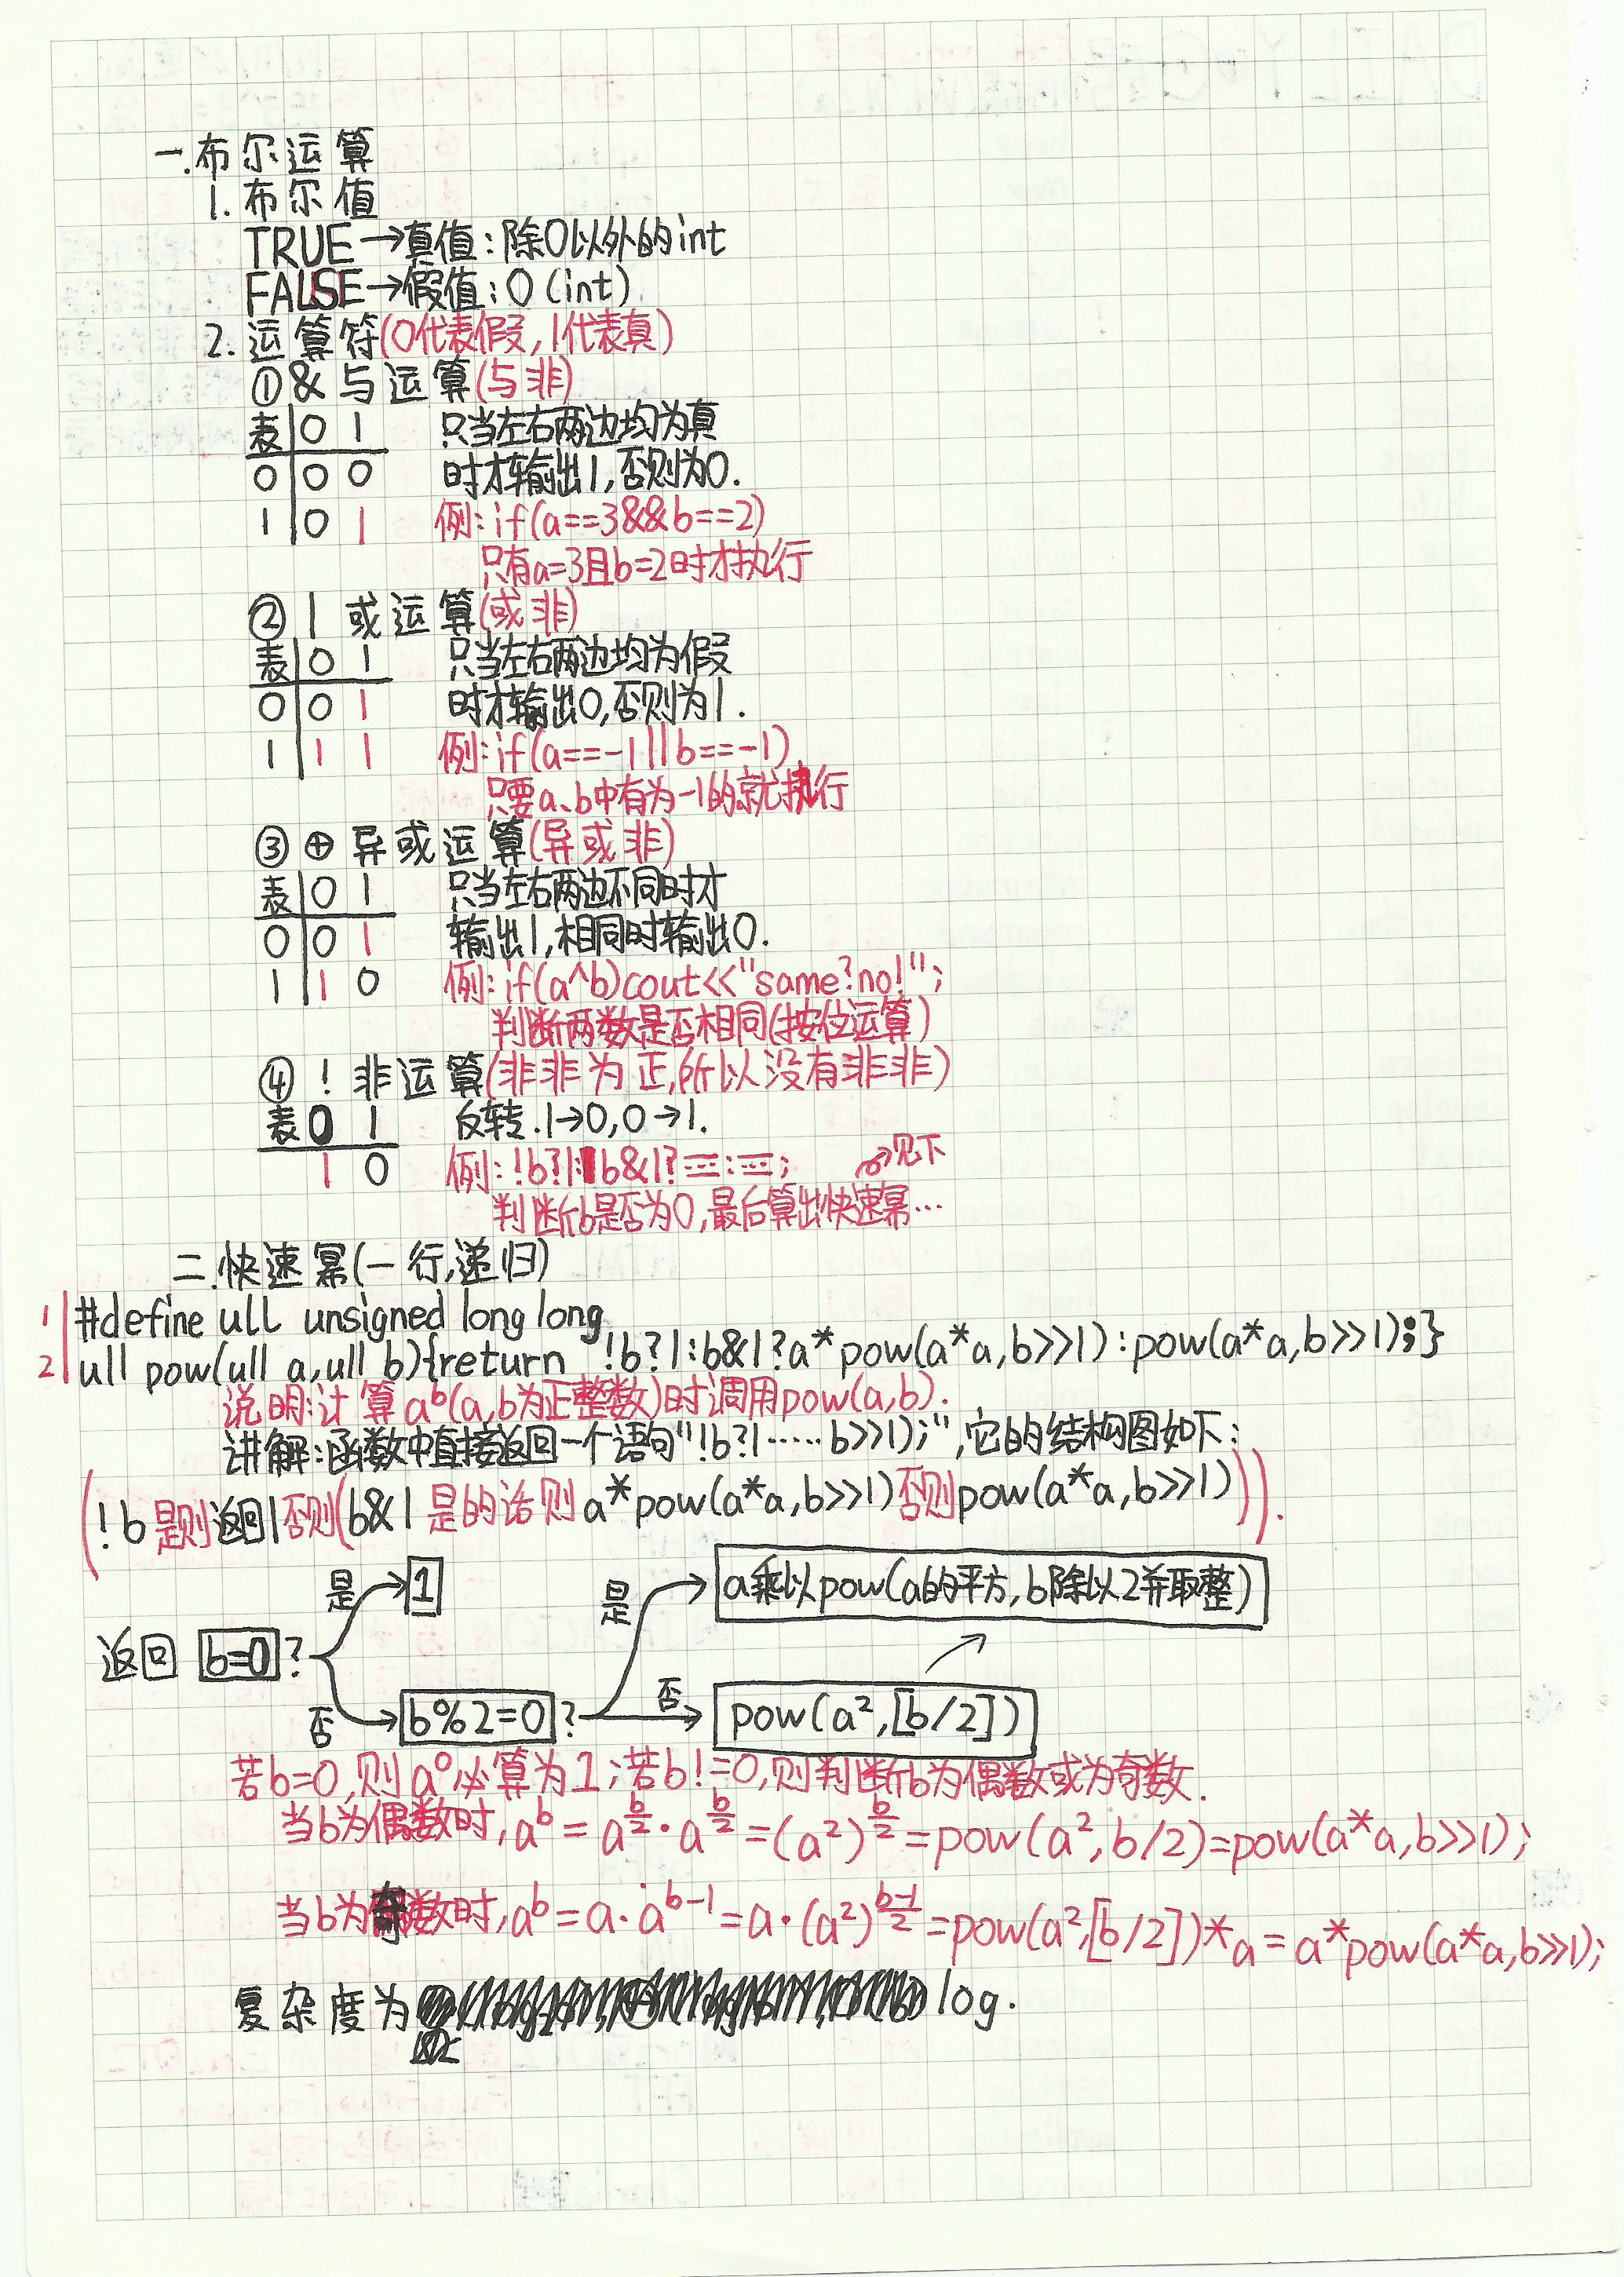 一.布尔运算
1.布尔值
TRUE→真值:除0以外的int
FALSE→假值:0(int)
2.运算符(0代表假,1代表真)
①&与运算(与非)
表 0 1 只当左右两边均为真
0 0 0 时才输出1,否则为0.
1 0 1 例:if(a==3&&b==2)
只有a=3且b=2时才执行
②|或运算(或非)
表 0 1 只当左右两边均为假
0 0 1 时才输出0,否则为1.
1 1 1 例:if(a==-1||b==-1)
只要a、b中有为-1的就执行
③⊕异或运算(异或非)
表 0 1 只当左右两边不同时才
0 0 1 输出1,相同时输出0.
1 1 0 例:if(a^b)cout<<"same?no!";
判断两数是否相同(按位运算)
④!非运算(非非为正,所以没有非非)
表 0 1 反转.1→0,0→1.
1 0 例:!b?1:b&1?三:三; 见下
判断b是否为0,最后算出快速幂…
二.快速幂(一行,递归)
1 #define ull unsigned long long
2 ull pow(ull a,ull b){return !b?1:b&1?a*pow(a*a,b>>1):pow(a*a,b>>1);}
说明:计算aᵇ(a,b为正整数)时调用pow(a,b).
讲解:函数中直接返回一个语句"!b?1……b>>1);",它的结构图如下:
(!b是则返回1否则(b&1是的话则a*pow(a*a,b>>1)否则pow(a*a,b>>1))).
是→1 是→a乘以pow(a的平方,b除以2并取整)
返回 b=0?
否→b%2=0? 否→pow(a²,[b/2])
若b=0,则a⁰必算为1;若b!=0,则判断b为偶数或为奇数.
当b为偶数时,aᵇ=a^(b/2)·a^(b/2)=(a²)^(b/2)=pow(a²,b/2)=pow(a*a,b>>1);
当b为奇数时,aᵇ=a·a^(b-1)=a·(a²)^((b-1)/2)=pow(a²,[b/2])*a=a*pow(a*a,b>>1);
复杂度为 log.